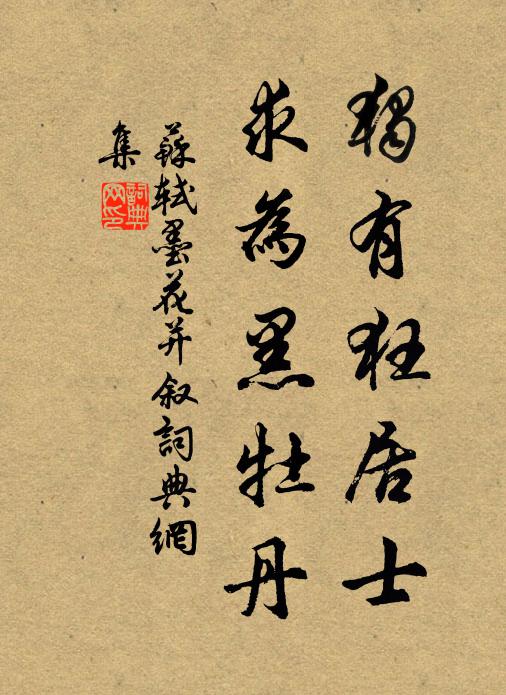 獨有狂居士
求為黑牡丹
蘇軾墨花并叙詞典網
集
詞典
网印